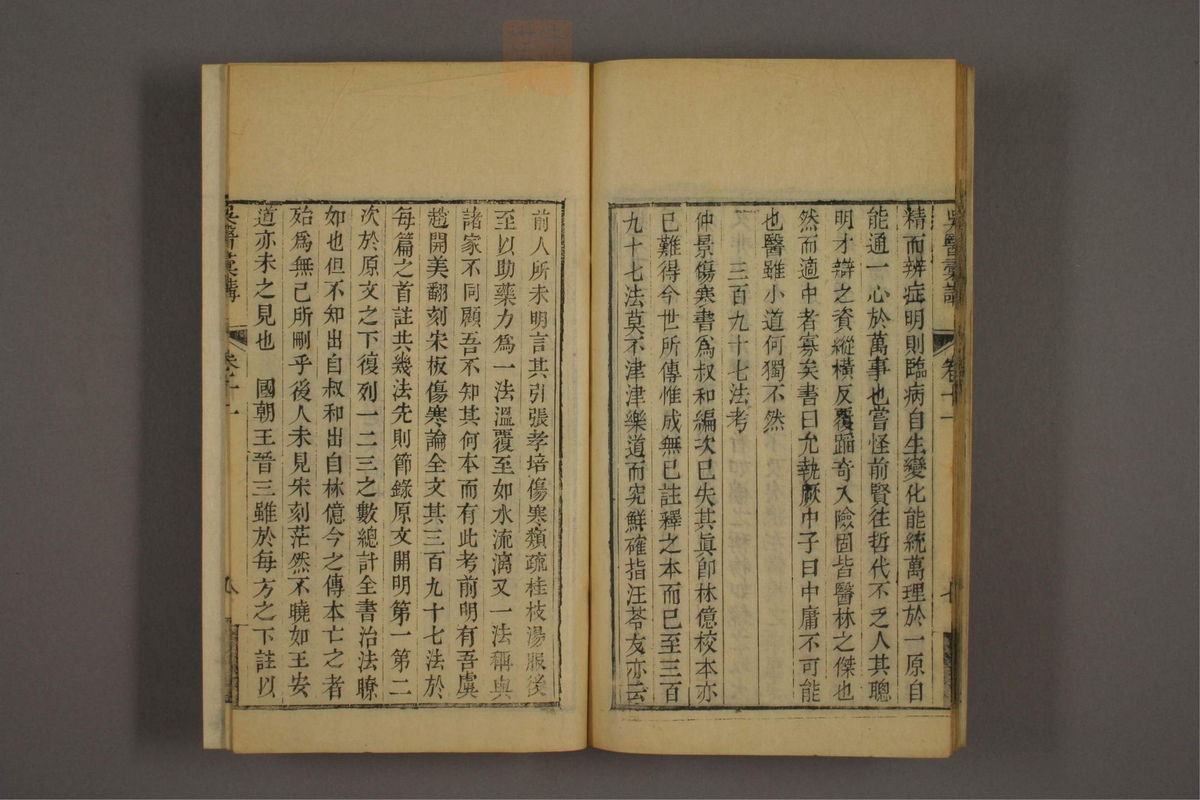 吳醫彙講
卷十一
七
精而辨症明則臨病自生變化能統萬理於一原自
能通一心於萬事也嘗怪前賢往哲代不乏人其聰
明才辯之資縱橫反覆蹈奇入險固皆醫林之傑也
然而適中者寡矣書曰允執厥中子曰中庸不可能
也醫雖小道何獨不然
三百九十七法考
仲景傷寒書爲叔和編次已失其眞卽林億校本亦
已難得今世所傳惟成無已註釋之本而已至三百
九十七法莫不津津樂道而究鮮確指汪苓友亦云
前人所未明言其引張孝培傷寒類疏桂枝湯服後
至以助藥力爲一法溫覆至如水流漓又一法稱與
諸家不同顧吾不知其何本而有此考前明有吾虞
趙開美翻刻宋板傷寒論全文其三百九十七法於
每篇之首註共幾法先則節錄原文開明第一第二
次於原文之下復列一二三之數總計全書治法瞭
如也但不知出自叔和出自林億今之傳本亡之者
殆爲無己所刪乎後人未見宋刻茫然不曉如王安
道亦未之見也　國朝王晉三雖於每方之下註以
吳醫彙講
卷十一
八